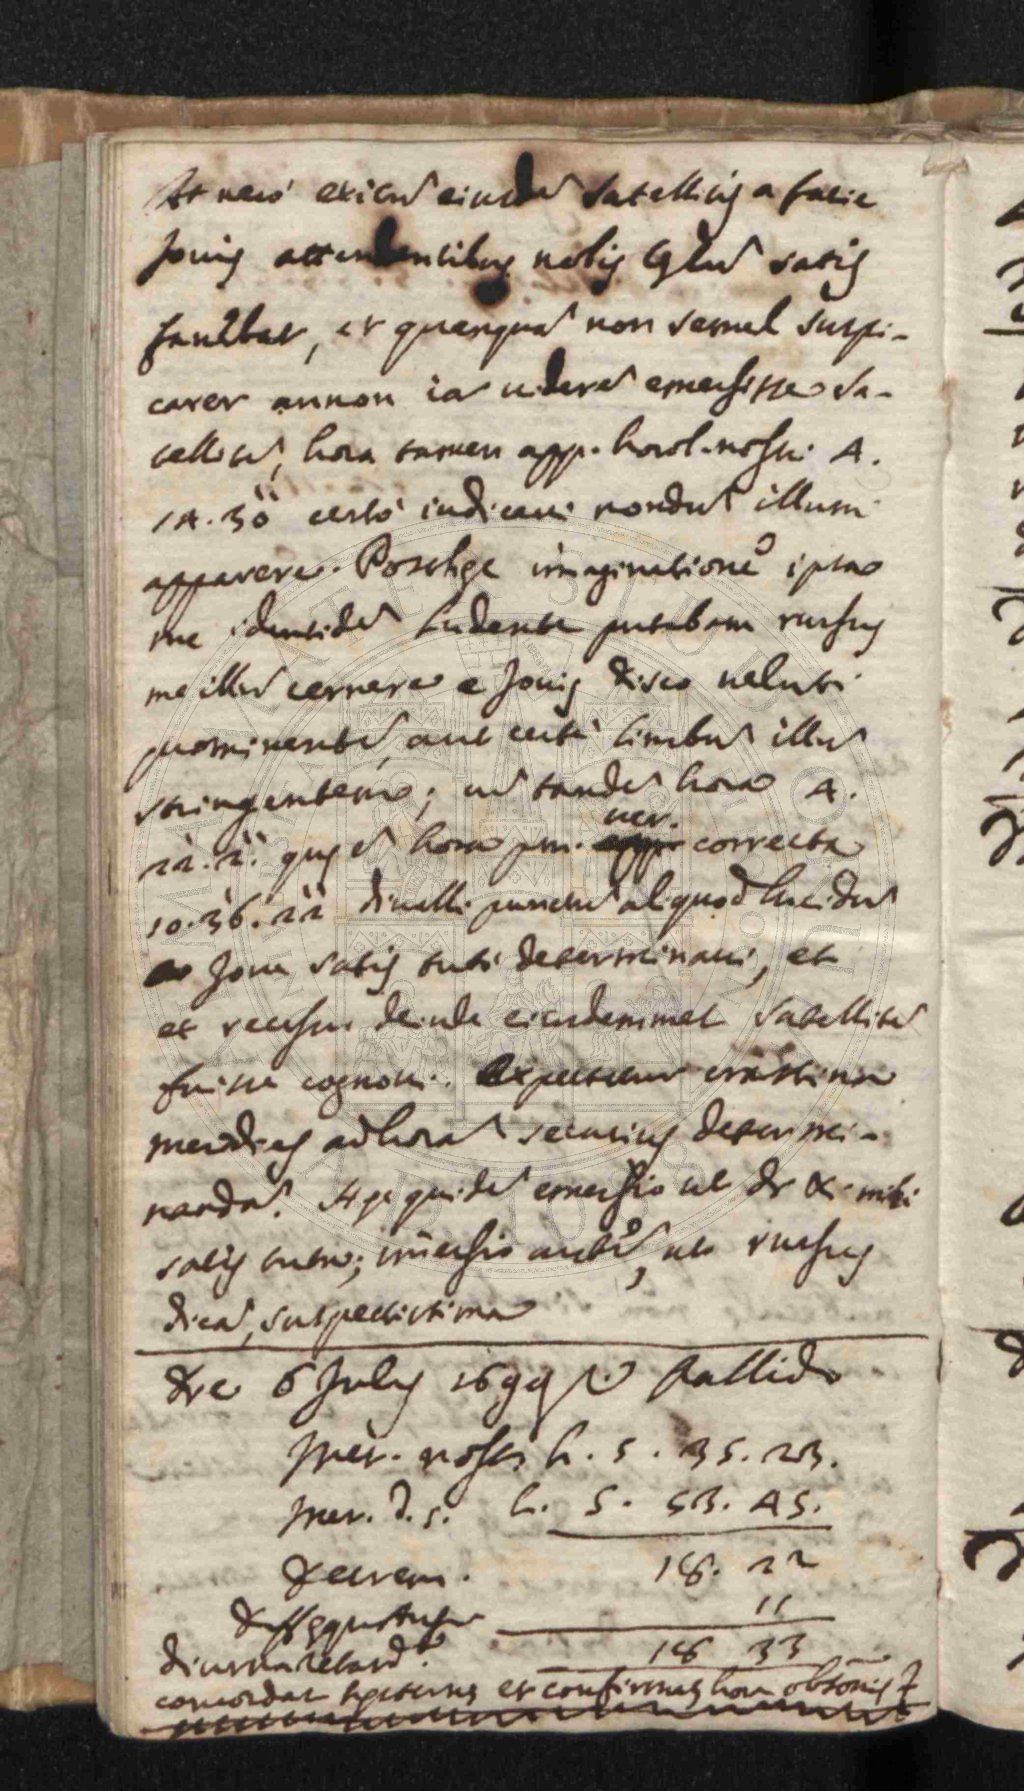 At vero exitum eiusdem Satellitis a facie
Jovis attendentibus nobis Cęlum satis
favebat, et quamquam non semel suspi-
carer annon iam viderem emersisse Sa-
tellitem, hora tamen app. horol. nostri 4.
14. 30 certo iudicavi nondum illum
apparere. Posthęc imaginatione ipsa
me identidem ludente putabam rursus
me illum cernere e Jovis disco veluti
prominentem, aut certe limbum illius
stringentem; cum tandem hora 4.
22. 2. quę est hora pm. ver. correcta
10. 36. 22 divelli punctum aliquod lucidum
Jove satis tuto determinavi, et
et recursu deinde eiusdemmet Satellitem
fuisse cognovi. Expectetur crastinus
meridies ad horam securius determi-
nandam. Atque quidem emersio ut dixi mihi
satis tuta; immersio autem, ut rursus
dicam, suspectissima
Die 6 Julij 1699 Pallido
Mer. nostri h. 5. 35. 23.
Mer. d. s. h. 5. 53. 45.
Decrem. 18. 22
Diff. 11
diurna retard. 18 33
concordat et confirmat horam obsonis